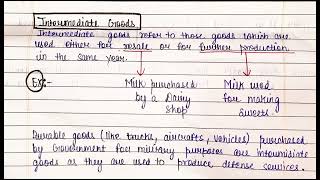 Intermediate Goods
Intermediate goods refer to those goods which are
used either for resale or for further production
in the same year.
Ex:- Milk purchased Milk used
by a Dairy for making
Shop sweets.
Durable goods (like trucks, aircrafts, vehicles) purchased
by Government for military purposes are intermediate
goods as they are used to produce defense services.